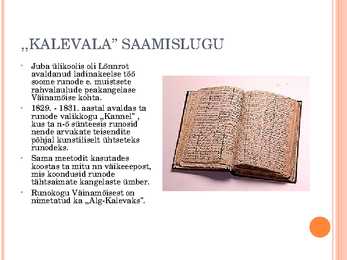 ,,KALEVALA” SAAMISLUGU
Juba ülikoolis oli Lönnrot
avaldanud ladinakeelse töö
soome runode e. muistsete
rahvalaulude peakangelase
Väinamõise kohta.
1829. - 1831. aastal avaldas ta
runode valikkogu ,,Kannel” ,
kus ta n-ö sünteesis runosid
nende arvukate teisendite
põhjal kunstiliselt ühtseteks
runodeks.
Sama meetodit kasutades
koostas ta mitu nn väikeeepost,
mis koondusid runode
tähtsaimate kangelaste ümber.
Runokogu Väinamõisest on
nimetatud ka ,,Alg-Kalevaks”.